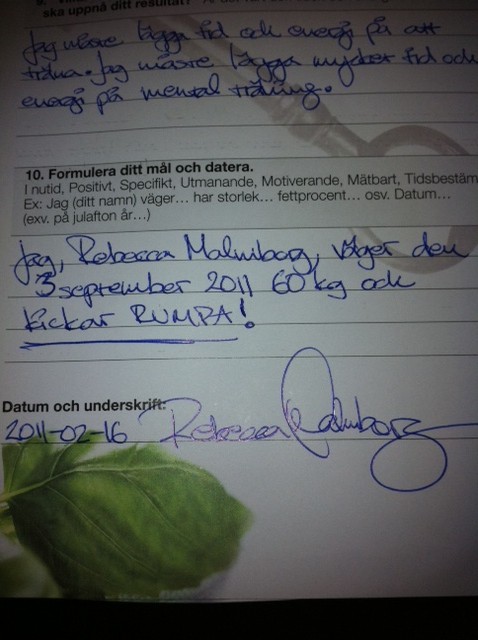 ska uppnå ditt resultat?
Jag måste lägga tid och energi på att
träna. Jag måste lägga mycket tid och
energi på mental träning.
10. Formulera ditt mål och datera.
I nutid, Positivt, Specifikt, Utmanande, Motiverande, Mätbart, Tidsbestäm
Ex: Jag (ditt namn) väger... har storlek... fettprocent... osv. Datum...
(exv. på julafton år...)
Jag, Rebecca Malmborg, väger den
3 september 2011 60 kg och
kickar RUMPA!
Datum och underskrift:
2011-02-16 Rebecca Malmborg